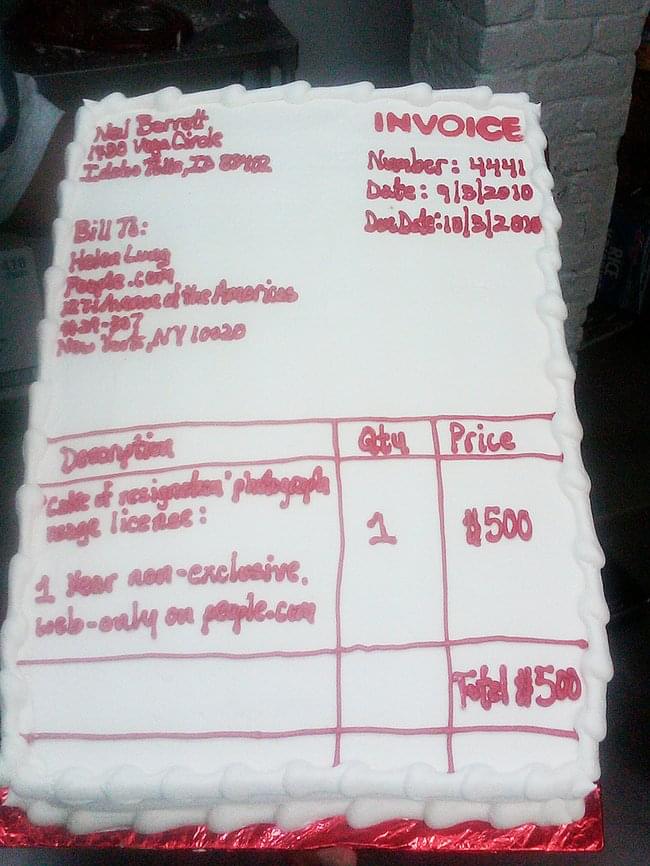 Neil Berrett
1400 Vega Circle
Idaho Falls, ID 83402
INVOICE
Number: 4441
Date: 9/3/2010
Due Date: 10/3/2010
Bill To:
Helen Lung
People.com
1271 Avenue of the Americas
#29-307
New York, NY 10020
Description
Qty
Price
"Cake of resignation" photograph
usage license:
1
$500
1 Year non-exclusive,
web-only on people.com
Total $500